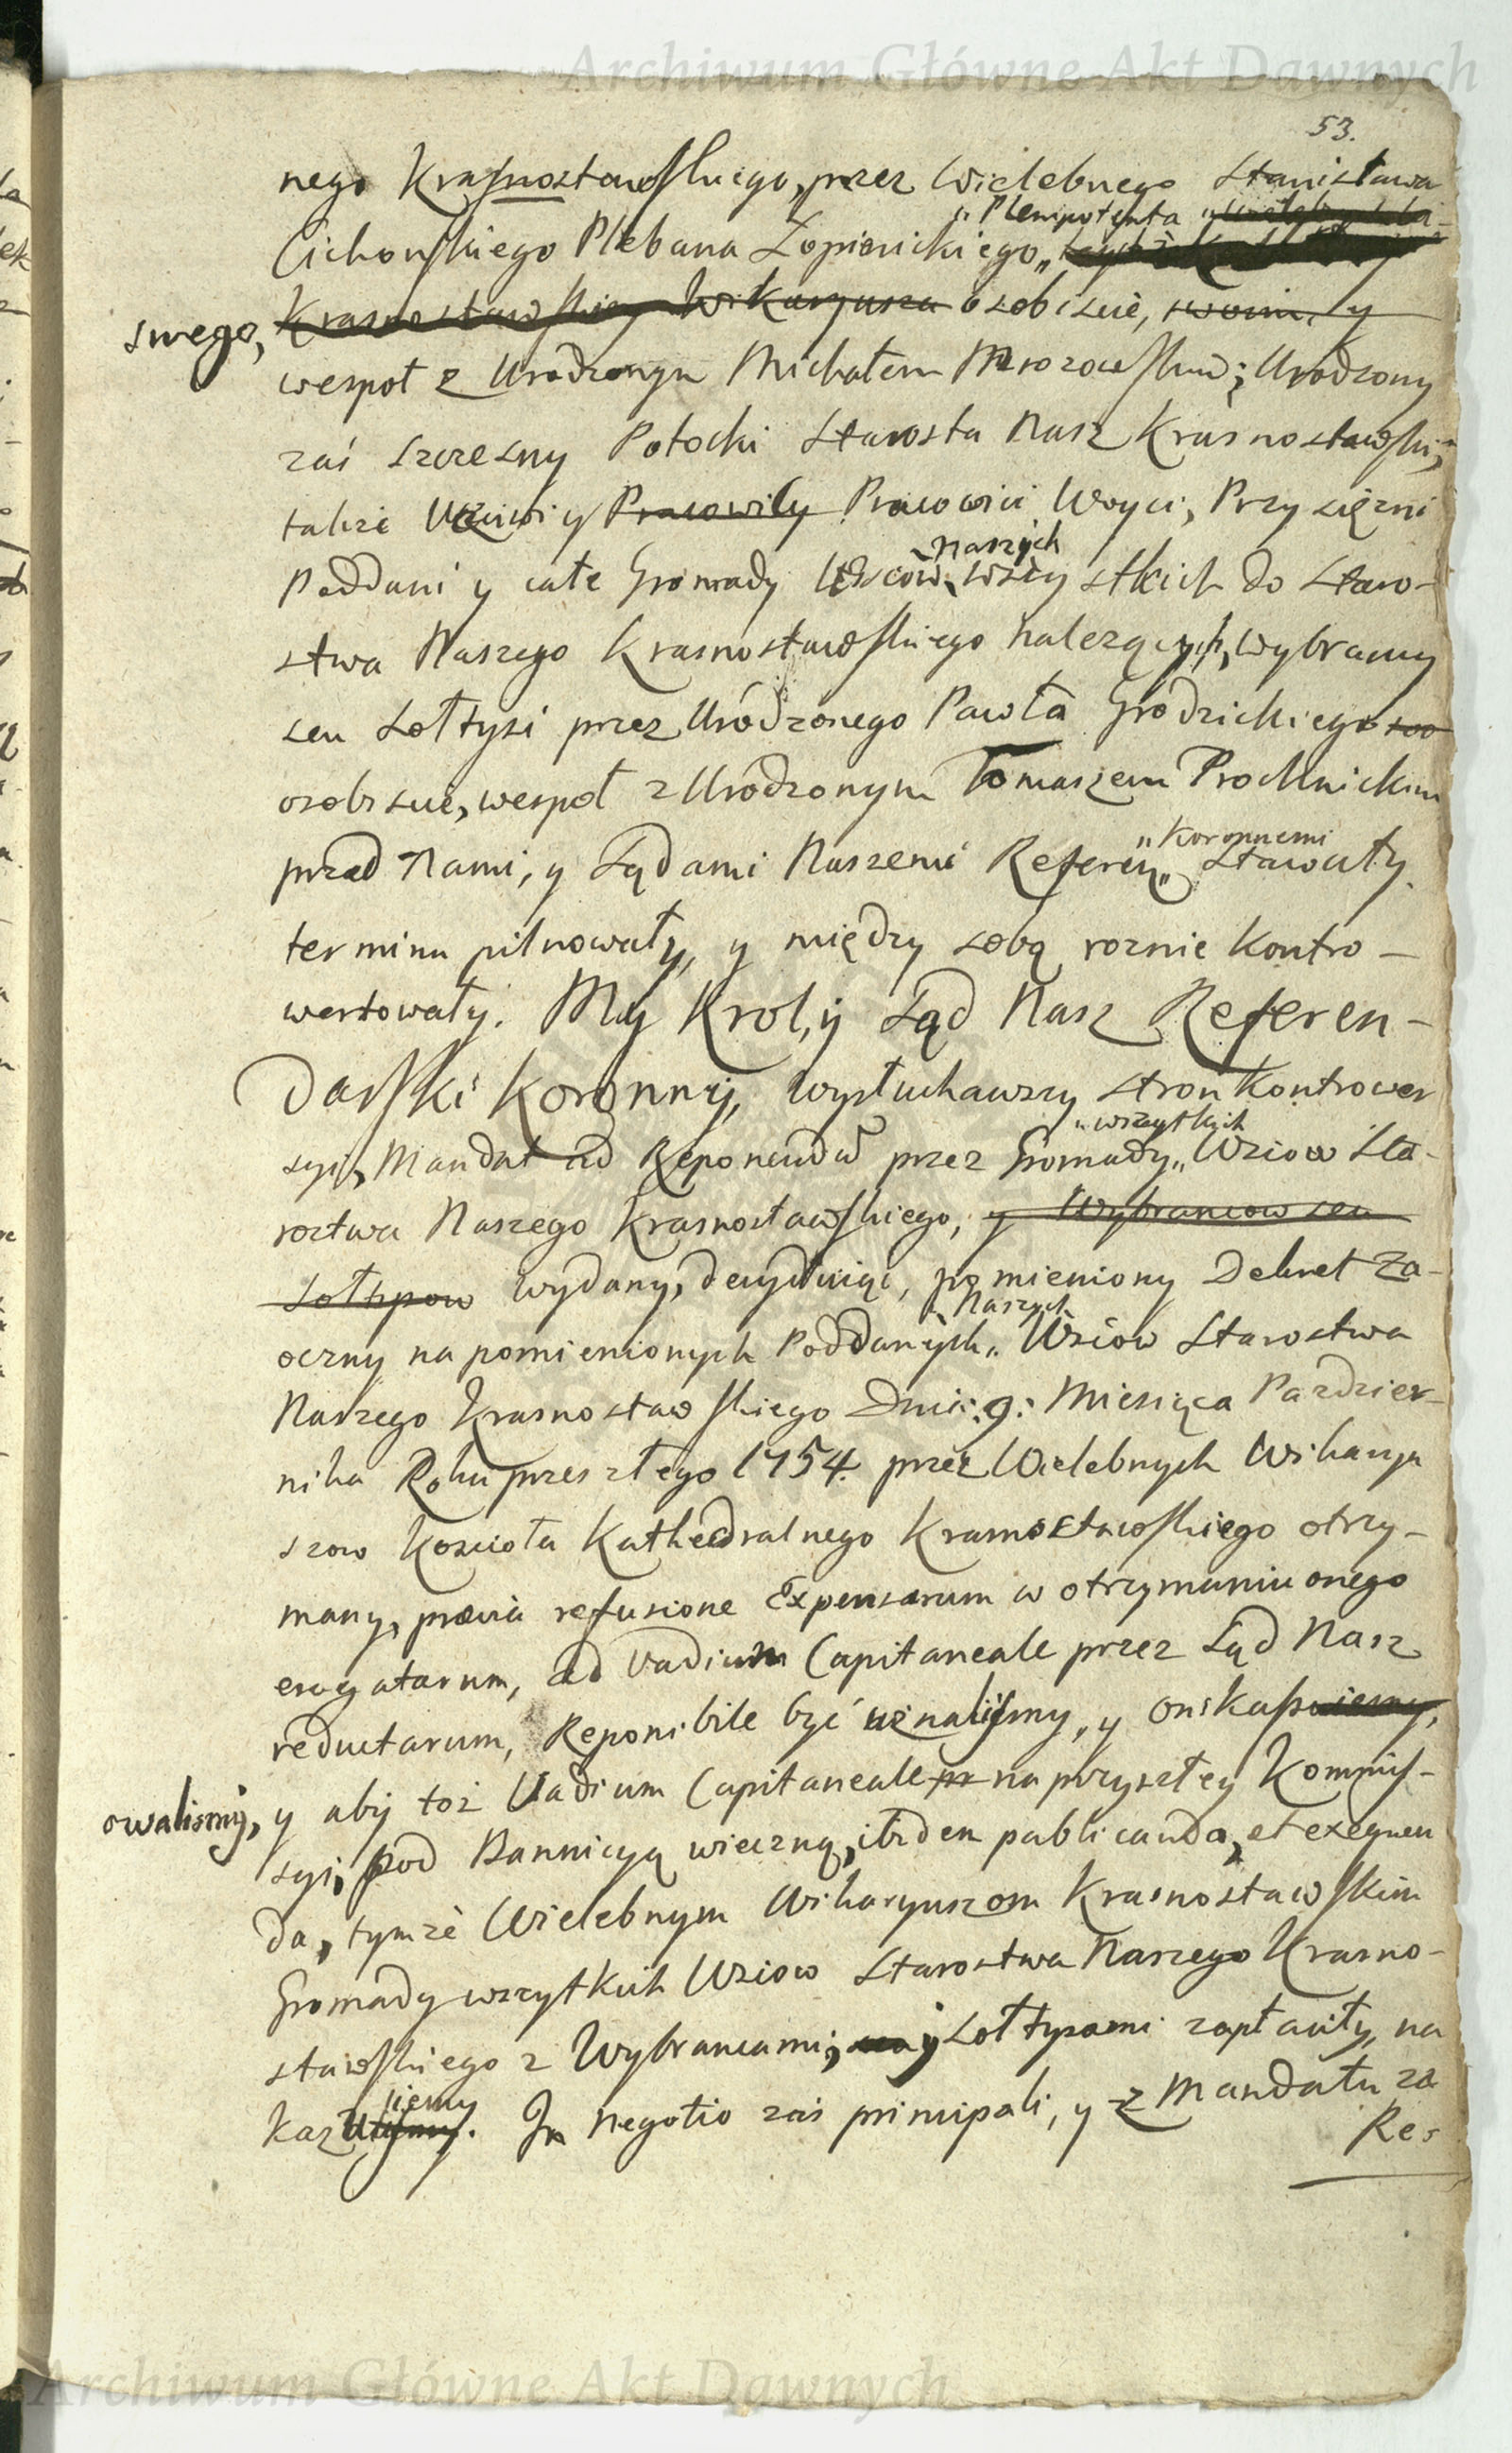 Archiwum Główne Akt Dawnych
53.
nego Krasnostawskiego, przez Wielebnego Stanisława
„Plenipotenta
Cichowskiego Plebana Łopienickiego„
swego, Krasnostawskiey Wikaryusza osobiscie, swoim, y
wespoł z Urodzonym Michałem Mrozowskim; Urodzony
zaś Szczesny Potocki Starosta Nasz Krasnostawski,
takze Uczciwi y Pracowity Pracowici Woyci, Przysięzni
Naszych
Poddani y całe Gromady Wsiow wszystkich do Staro-
stwa Naszego Krasnostawskiego nalezących, Wybrancy
seu Sołtysi przez Urodzonego Pawła Grodzickiego swo
osobiscie, wespoł z Urodzonym Tomaszem Prochnickim
„Koronnemi
przed Nami, y Sądami Naszemi Referen„ Stawały.
terminu pilnowały, y między sobą roznie kontro-
wertowały. My Krol, y Sąd Nasz Referen-
darski Koronny, wysłuchawszy stron kontrower
„wszystkich
syi, Mandat ad Reponendũ przez Gromady„ Wsiow Sta-
rostwa Naszego Krasnostawskiego, y Wybrancow seu
Sołtysow wydany, decyduiąc, pomieniony Dekret Za-
Naszych
oczny na pomienionych Poddanych„ Wsiow Starostwa
Naszego Krasnostawskiego Dnia: 9: Miesiąca Pazdzier-
nika Roku przeszłego 1754. przez Wielebnych Wikaryu
szow Koscioła Kathedralnego Krasnostawskiego otrzy-
many, prævia refusione Expensarum w otrzymaniu onego
erogatarum, ad Vadium Capitaneale przez Sąd Nasz
reductarum, Reponibile być uznalismy, y onskassuiemy,
owalismy, y aby toż Vadium Capitaneale pr na przyszłey Kommis-
syi, pod Bannicyą wieczną, ibidem publicanda, et exequen
da, tymże Wielebnym Wikaryuszom Krasnostawskim
Gromady wszytkich Wsiow Starostwa Naszego Krasno-
stawskiego z Wybrancami, y Sołtysami zapłaciły, na
iemy
kaz. In negotio zaś principali, y z Mandatu za
Res
Archiwum Główne Akt Dawnych